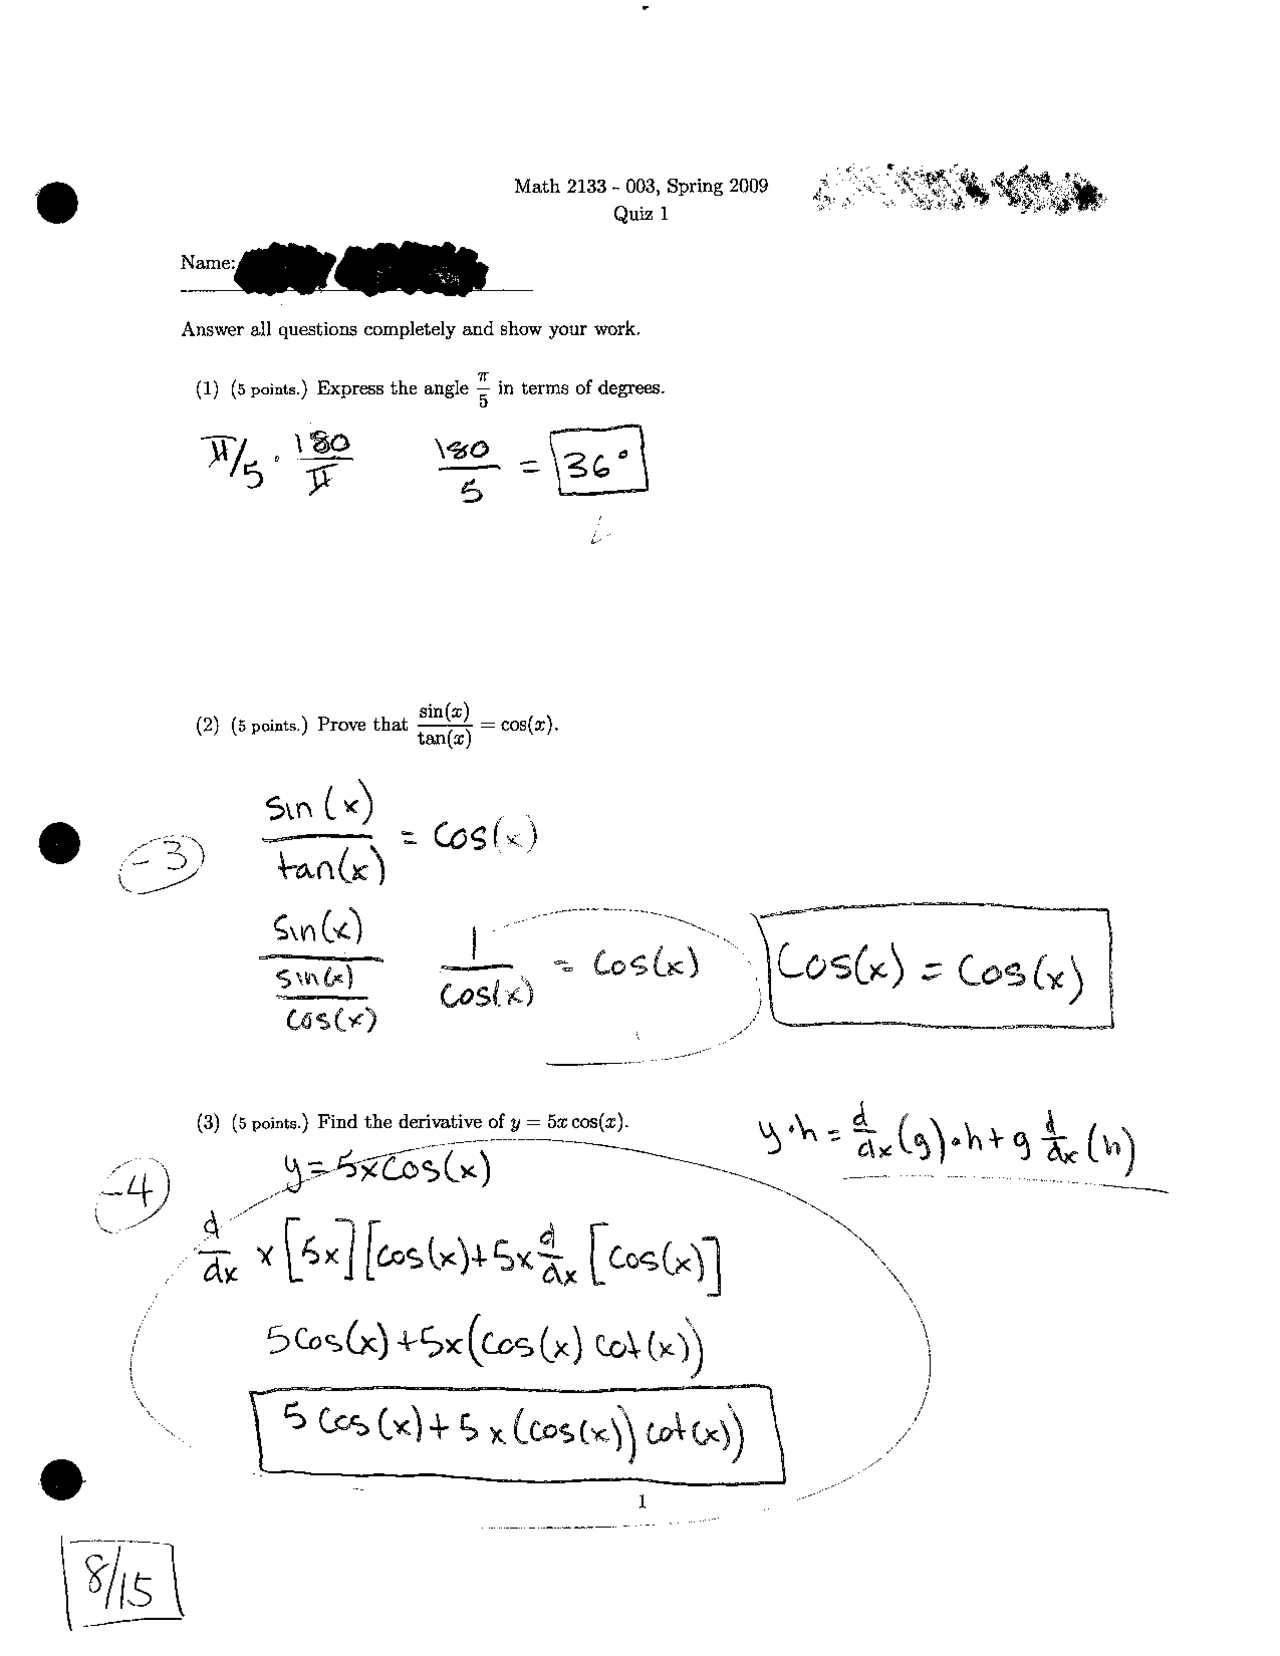 Math 2133 - 003, Spring 2009
Quiz 1
Name:
Answer all questions completely and show your work.
(1) (5 points.) Express the angle π/5 in terms of degrees.
π/5 · 180/π 180/5 = 36°
(2) (5 points.) Prove that sin(x)/tan(x) = cos(x).
-3
sin(x)/tan(x) = cos(x)
sin(x)/(sin(x)/cos(x)) 1/cos(x) = cos(x) cos(x) = cos(x)
(3) (5 points.) Find the derivative of y = 5x cos(x).
y·h = d/dx (g)·h + g d/dx (h)
-4
y = 5x cos(x)
d/dx x [5x] [cos(x) + 5x d/dx [cos(x)]
5 cos(x) + 5x (cos(x) cot(x))
5 cos(x) + 5x (cos(x)) cot(x))
1
8/15